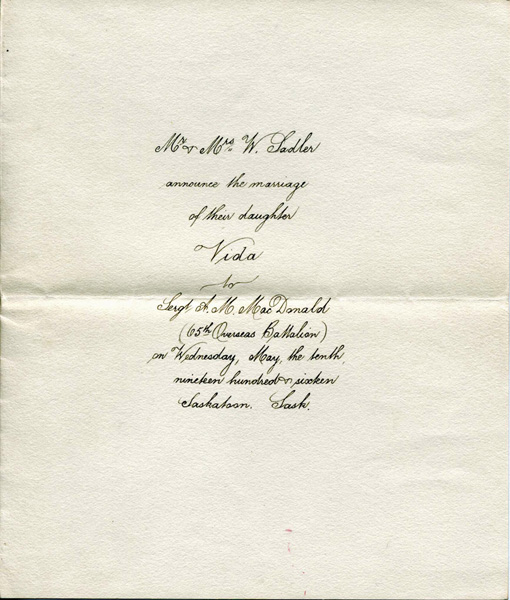 Mr & Mrs W. Sadler
announce the marriage
of their daughter
Vida
to
Sergt A. M. MacDonald
(65th Overseas Battalion)
on Wednesday, May, the tenth,
nineteen hundred & sixteen
Saskatoon. Sask.